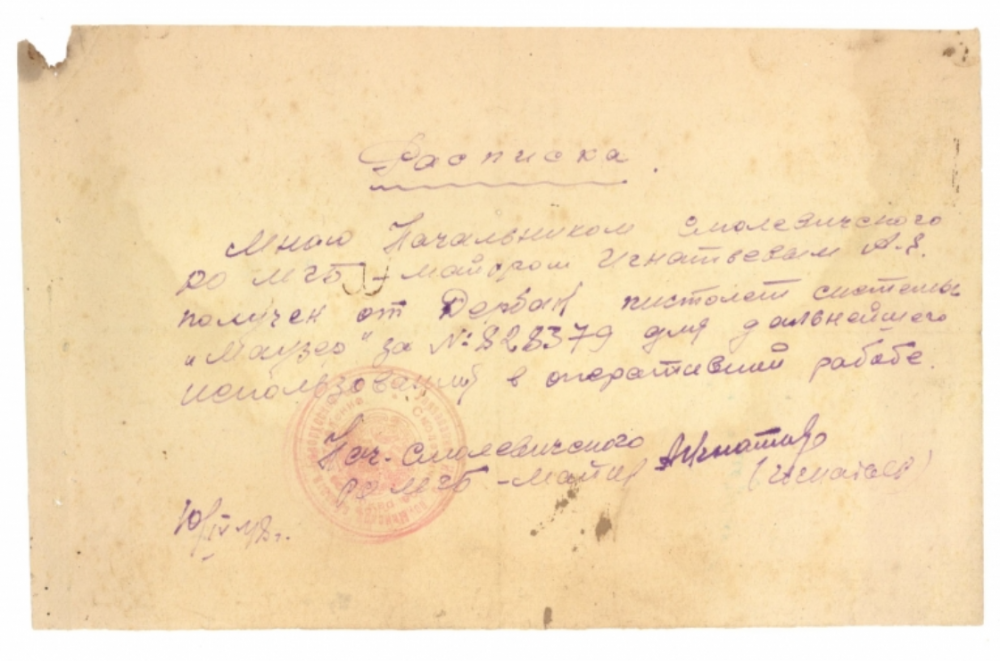 Расписка.
Мною Начальником Смолевичского
РО МГБ – майором Игнатьевым А.Я.
получен от Дербан пистолет системы
„Маузер" за №828379 для дальнейшего
использования в оперативной работе.
Нач. Смолевичского
РО МГБ – майор
(Игнатьев)
10/IV